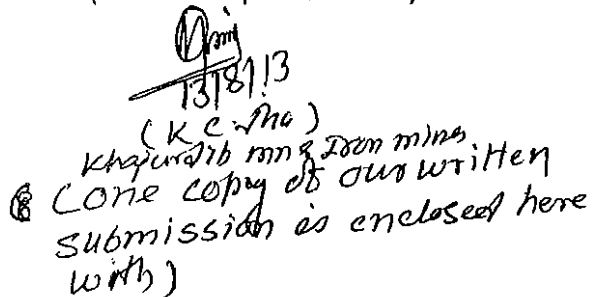 13/8/13
(K C Jha)
Khajurdib mn & Iron mines
(one copy of our written
submission is enclosed here
with)